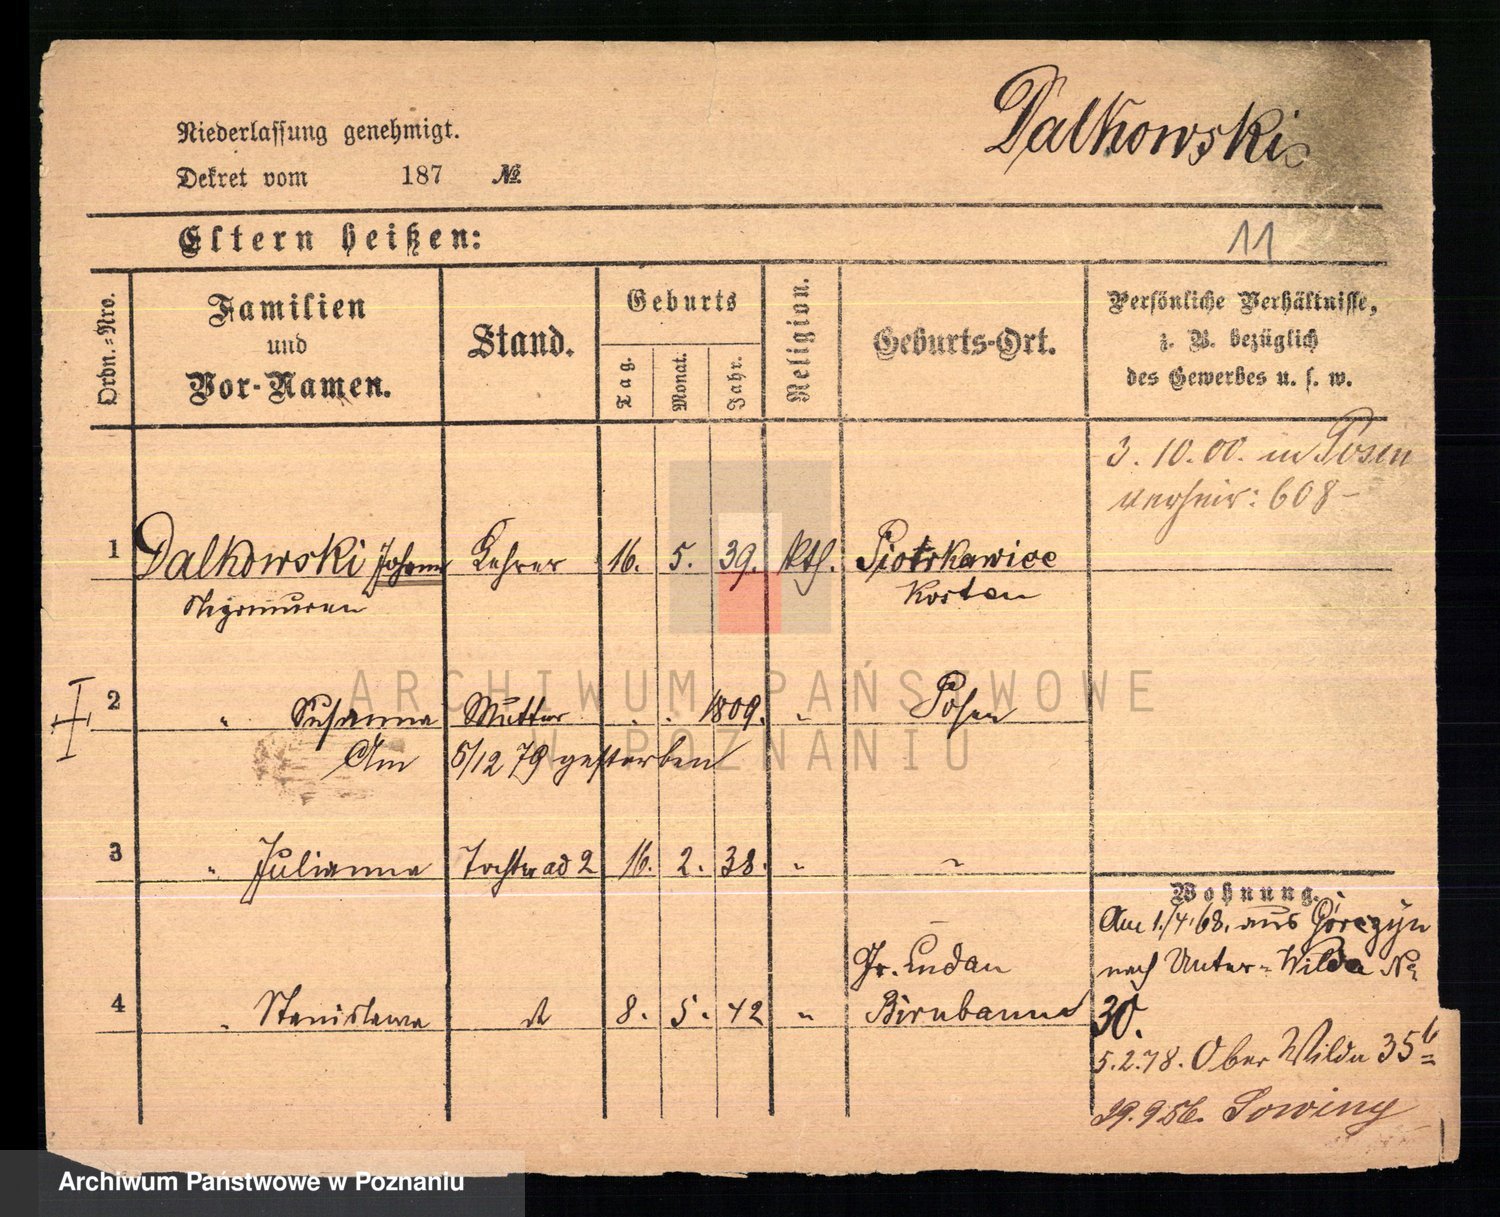 Dalkowski
Niederlassung genehmigt.
Dekret vom 187 №
Eltern heißen:
11
Ordn.=Nro.
Familien
und
Vor-Namen.
Stand.
Geburts
Tag.
Monat.
Jahr.
Religion.
Geburts-Ort.
Persönliche Verhältnisse,
z. B. bezüglich
des Gewerbes u. s. w.
3. 10. 00. in Posen
verheir: 608-
1 Dalkowski Johann Lehrer 16. 5. 39. kth. Piotrkowice
Kosten
2 " Susanna Mutter . . 1809. " Posen
Am 5/12 79 gestorben
3 " Julianna Tochter ad 2 16. 2. 38. " "
Wohnung.
Am 1./4. 68. aus Górczyn
nach Unter-Wilda №
30.
4 " Stanislawa 8. 5. 42 "
Birnbaum
5.2.78. Ober Wilda 35b
ARCHIWUM PAŃSTWOWE
W POZNANIU
Archiwum Państwowe w Poznaniu